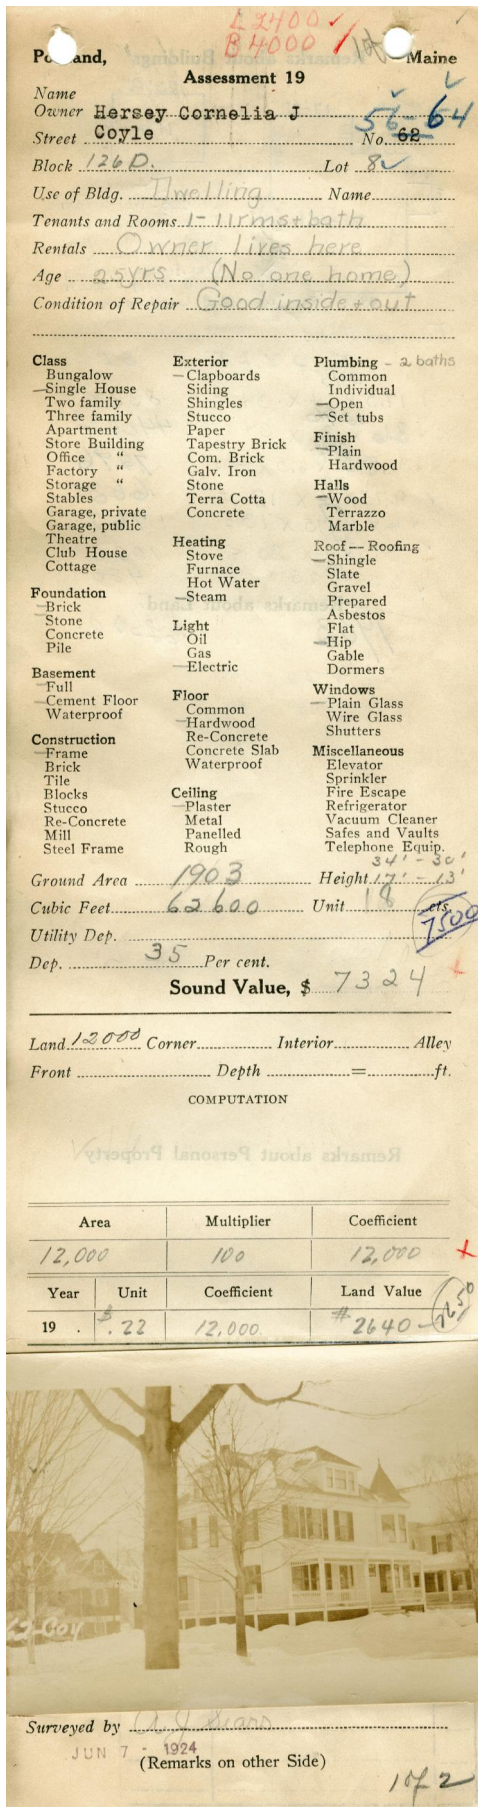 L 2400 ✓
B 4000 ✓
Portland, Maine
Assessment 19
Name
Owner Hersey Cornelia J 56-64
Street Coyle No. 62
Block 126 D. Lot 8 ✓
Use of Bldg. Dwelling Name
Tenants and Rooms 1-11rms+bath
Rentals Owner lives here
Age 25yrs (No one home)
Condition of Repair Good inside + out
Class
Bungalow
Single House
Two family
Three family
Apartment
Store Building
Office "
Factory "
Storage "
Stables
Garage, private
Garage, public
Theatre
Club House
Cottage
Foundation
Brick
Stone
Concrete
Pile
Basement
Full
Cement Floor
Waterproof
Construction
Frame
Brick
Tile
Blocks
Stucco
Re-Concrete
Mill
Steel Frame
Exterior
Clapboards
Siding
Shingles
Stucco
Paper
Tapestry Brick
Com. Brick
Galv. Iron
Stone
Terra Cotta
Concrete
Heating
Stove
Furnace
Hot Water
Steam
Light
Oil
Gas
Electric
Floor
Common
Hardwood
Re-Concrete
Concrete Slab
Waterproof
Ceiling
Plaster
Metal
Panelled
Rough
Plumbing - 2 baths
Common
Individual
Open
Set tubs
Finish
Plain
Hardwood
Halls
Wood
Terrazzo
Marble
Roof -- Roofing
Shingle
Slate
Gravel
Prepared
Asbestos
Flat
Hip
Gable
Dormers
Windows
Plain Glass
Wire Glass
Shutters
Miscellaneous
Elevator
Sprinkler
Fire Escape
Refrigerator
Vacuum Cleaner
Safes and Vaults
Telephone Equip.
34' - 30'
Ground Area 1903 Height 17' - 13'
Cubic Feet 62600 Unit 18 cts.
7500
Utility Dep.
Dep. 35 Per cent.
Sound Value, $ 7324
Land 12000 Corner Interior Alley
Front Depth = ft.
COMPUTATION
Remarks about Personal Property
Area Multiplier Coefficient
12,000 100 12,000
Year Unit Coefficient Land Value
19 . $.22 12,000 2640 - 2650
62-Coy
Surveyed by
JUN 7 - 1924
(Remarks on other Side)
1 of 2